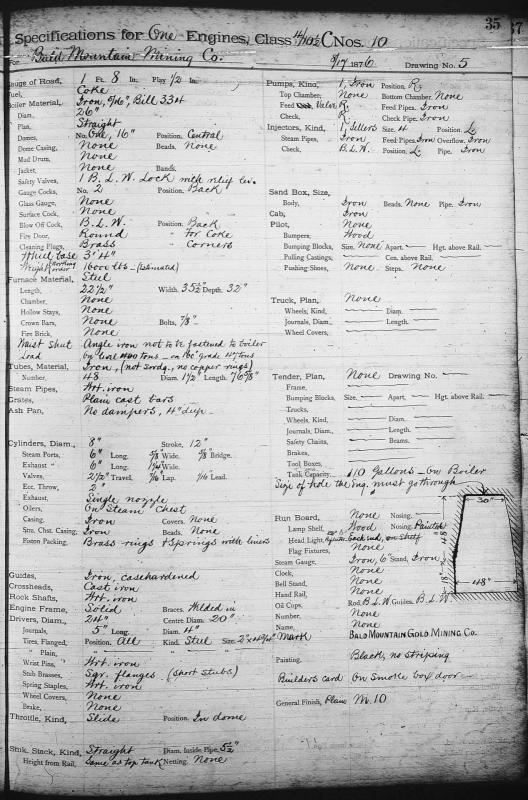 35
37
Specifications for One Engines, Class 4/10½ C Nos. 10
For Bald Mountain Mining Co. 8/17 1876 Drawing No. 5
Gauge of Road, 1 Ft. 8 In. Play ½ In.
Fuel, Coke
Boiler Material, Iron, 5/16", Bill 334
Diam. 26"
Plan, Straight
Domes, No. One, 16" Position, Central
Dome Casing, None Beads. None
Mud Drum, None
Jacket, None Bands.
Safety Valves, 1 B. L. W. Lock with relief lev.
Gauge Cocks, No. 2 Position, Back
Glass Gauge, None
Surface Cock, None
Blow Off Cock, B. L. W. Position. Back
Fire Door, Round For Coke
Cleaning Plugs, Brass " Corners
Wheel base 3' 4"
Weight in Working order 16000 lbs - (Estimated)
Furnace Material, Steel
Length, 22½" Width. 35½" Depth. 32"
Chamber, None
Hollow Stays, None
Crown Bars, None Bolts, 7/8"
Fire Brick, None
Waist Sheet Angle iron not to be fastened to boiler
Load on level tons - on 100' grade 47 tons
Tubes, Material, Iron, (not swdg., no copper rings)
Number, 48 Diam. 1½" Length. 76⅝"
Steam Pipes, Wrt. iron
Grates, Plain cast bars
Ash Pan, No dampers, 4" deep
Cylinders, Diam., 8" Stroke, 12"
Steam Ports, 6" Long. 5/8" Wide. 5/8" Bridge.
Exhaust " 6" Long. 1¼" Wide.
Valves, 2½" Travel. 7/16" Lap. 1/16" Lead.
Ecc. Throw, 2"
Exhaust, Single nozzle
Oilers, On Steam Chest
Casing, Iron Covers. None
Stm. Chst. Casing, Iron Beads. None
Piston Packing, Brass rings & Springs with liners
Guides, Iron, casehardened
Crossheads, Cast iron
Rock Shafts, Wrt. iron
Engine Frame, Solid Braces, Welded in
Drivers, Diam., 24" Centre Diam. 20"
Journals, 5" Long. Diam. 4"
Tires, Flanged, Position, All Kind. Steel Size.
" Plain, " "
Wrist Pins, Wrt. iron
Stub Brasses, Sqr. flanges (Short Stubs)
Spring Staples, Wrt. iron
Wheel Covers, None
Brake, None
Throttle, Kind, Slide Position, In dome
Smk. Stack, Kind, Straight Diam. Inside Pipe, 5½"
Height from Rail, Same as top tank Netting. None
Pumps, Kind, 1, Iron Position, R.
Top Chamber, None Bottom Chamber, None
Feed Cock, Valve R. Feed Pipes. Iron
Check, R. Check Pipe. Iron
Injectors, Kind, 1, Sellers Size. 4 Position, L.
Steam Pipes, Iron Feed Pipes. Iron Overflow. Iron
Check, B. L. W. Position. L. Pipe. Iron
Sand Box, Size,
Body, Iron Beads. None Pipe. Iron
Cab, Iron
Pilot, None
Bumpers, Wood
Bumping Blocks, Size. None Apart. — Hgt. above Rail. —
Pulling Castings, — Cen. above Rail. —
Pushing Shoes, None Steps. None
Truck, Plan, None
Wheels, Kind, — Diam. —
Journals, Diam., — Length. —
Wheel Covers, —
Tender, Plan, None Drawing No. —
Frame, —
Bumping Blocks, Size. — Apart. — Hgt. above Rail. —
Trucks, —
Wheels, Kind, — Diam. —
Journals, Diam., — Length. —
Safety Chains, — Beams. —
Brakes, —
Tool Boxes, —
Tank Capacity, 110 Gallons - On Boiler
Size of hole the Eng. must go through
30"
48"
18"
48"
Run Board, None Nosing, None
Lamp Shelf, Wood Nosing. Painted
Head Light, Back end, on Shelf
Flag Fixtures, None
Steam Gauge, Iron, 6" Stand, Iron
Clock, None
Bell Stand, None
Hand Rail, None
Oil Cups, Rod. B. L. W. Guides. B. L. W.
Number, None
Name, None
Mark BALD MOUNTAIN GOLD MINING CO.
Painting, Black, no striping
Builders card On smoke box door
General Finish, Plain M. 10